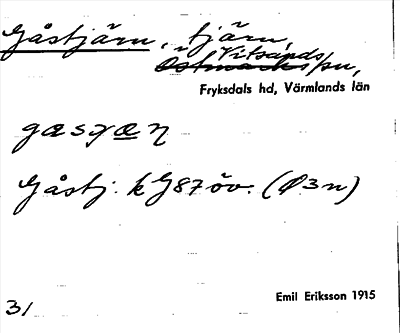 Gåstjärn, tjärn,
Vitsands
Östmarks sn,
Fryksdals hd, Värmlands län
gɑsyæɳ
Gåstj. kJ G87öv. (Ø3n)
Emil Eriksson 1915
31